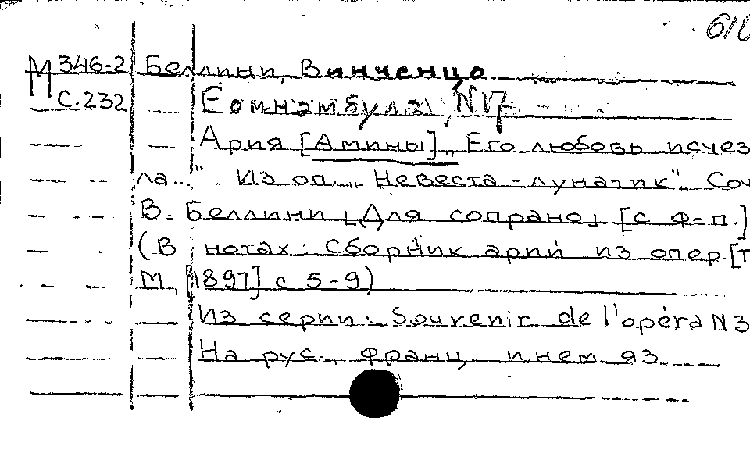 610
М 346-2 Беллини, Винченцо
С.232 Сомнамбула N17
Ария [Амины] „Его любовь исчез
ла..." Из оп. „Невеста-лунатик". Соч
В. Беллини [Для сопрано] [с ф-п.]
(В нотах: Сборник арий из опер. [Т
М. [1897] с 5-9)
Из серии: Souvenir de l'opéra N3
На рус., франц. и нем яз.